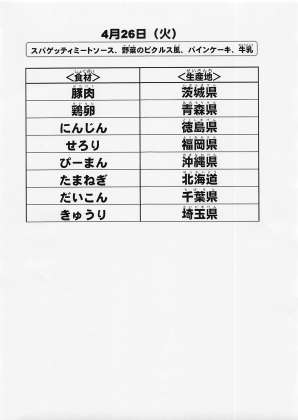 4月26日（火）
スパゲッティミートソース、野菜のピクルス風、パインケーキ、牛乳
＜食材＞ ＜生産地＞
豚肉 茨城県
鶏卵 青森県
にんじん 徳島県
せろり 福岡県
ぴーまん 沖縄県
たまねぎ 北海道
だいこん 千葉県
きゅうり 埼玉県